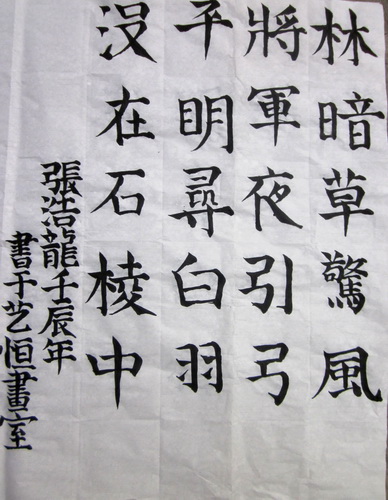 林暗草驚風
將軍夜引弓
平明尋白羽
没在石棱中
張浩龍壬辰年
書于艺恒畫室